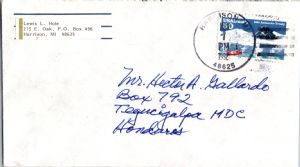 Lewis L. Hole
215 E. Oak, P.O. Box 496
Harrison, MI 48625
HARRISON
PM
48625
Mr. Hector A. Gallardo
Box 792
Tegucigalpa MDC
Honduras